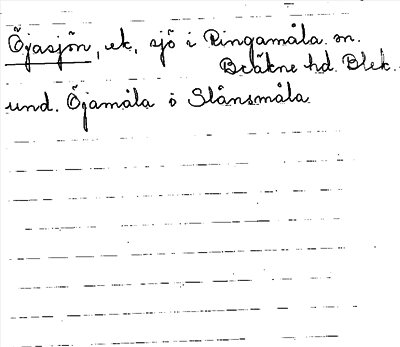 Öjasjön, ek, sjö i Ringamåla sn.
Bräkne hd. Blek.
und. Öjamåla o Slånsmåla